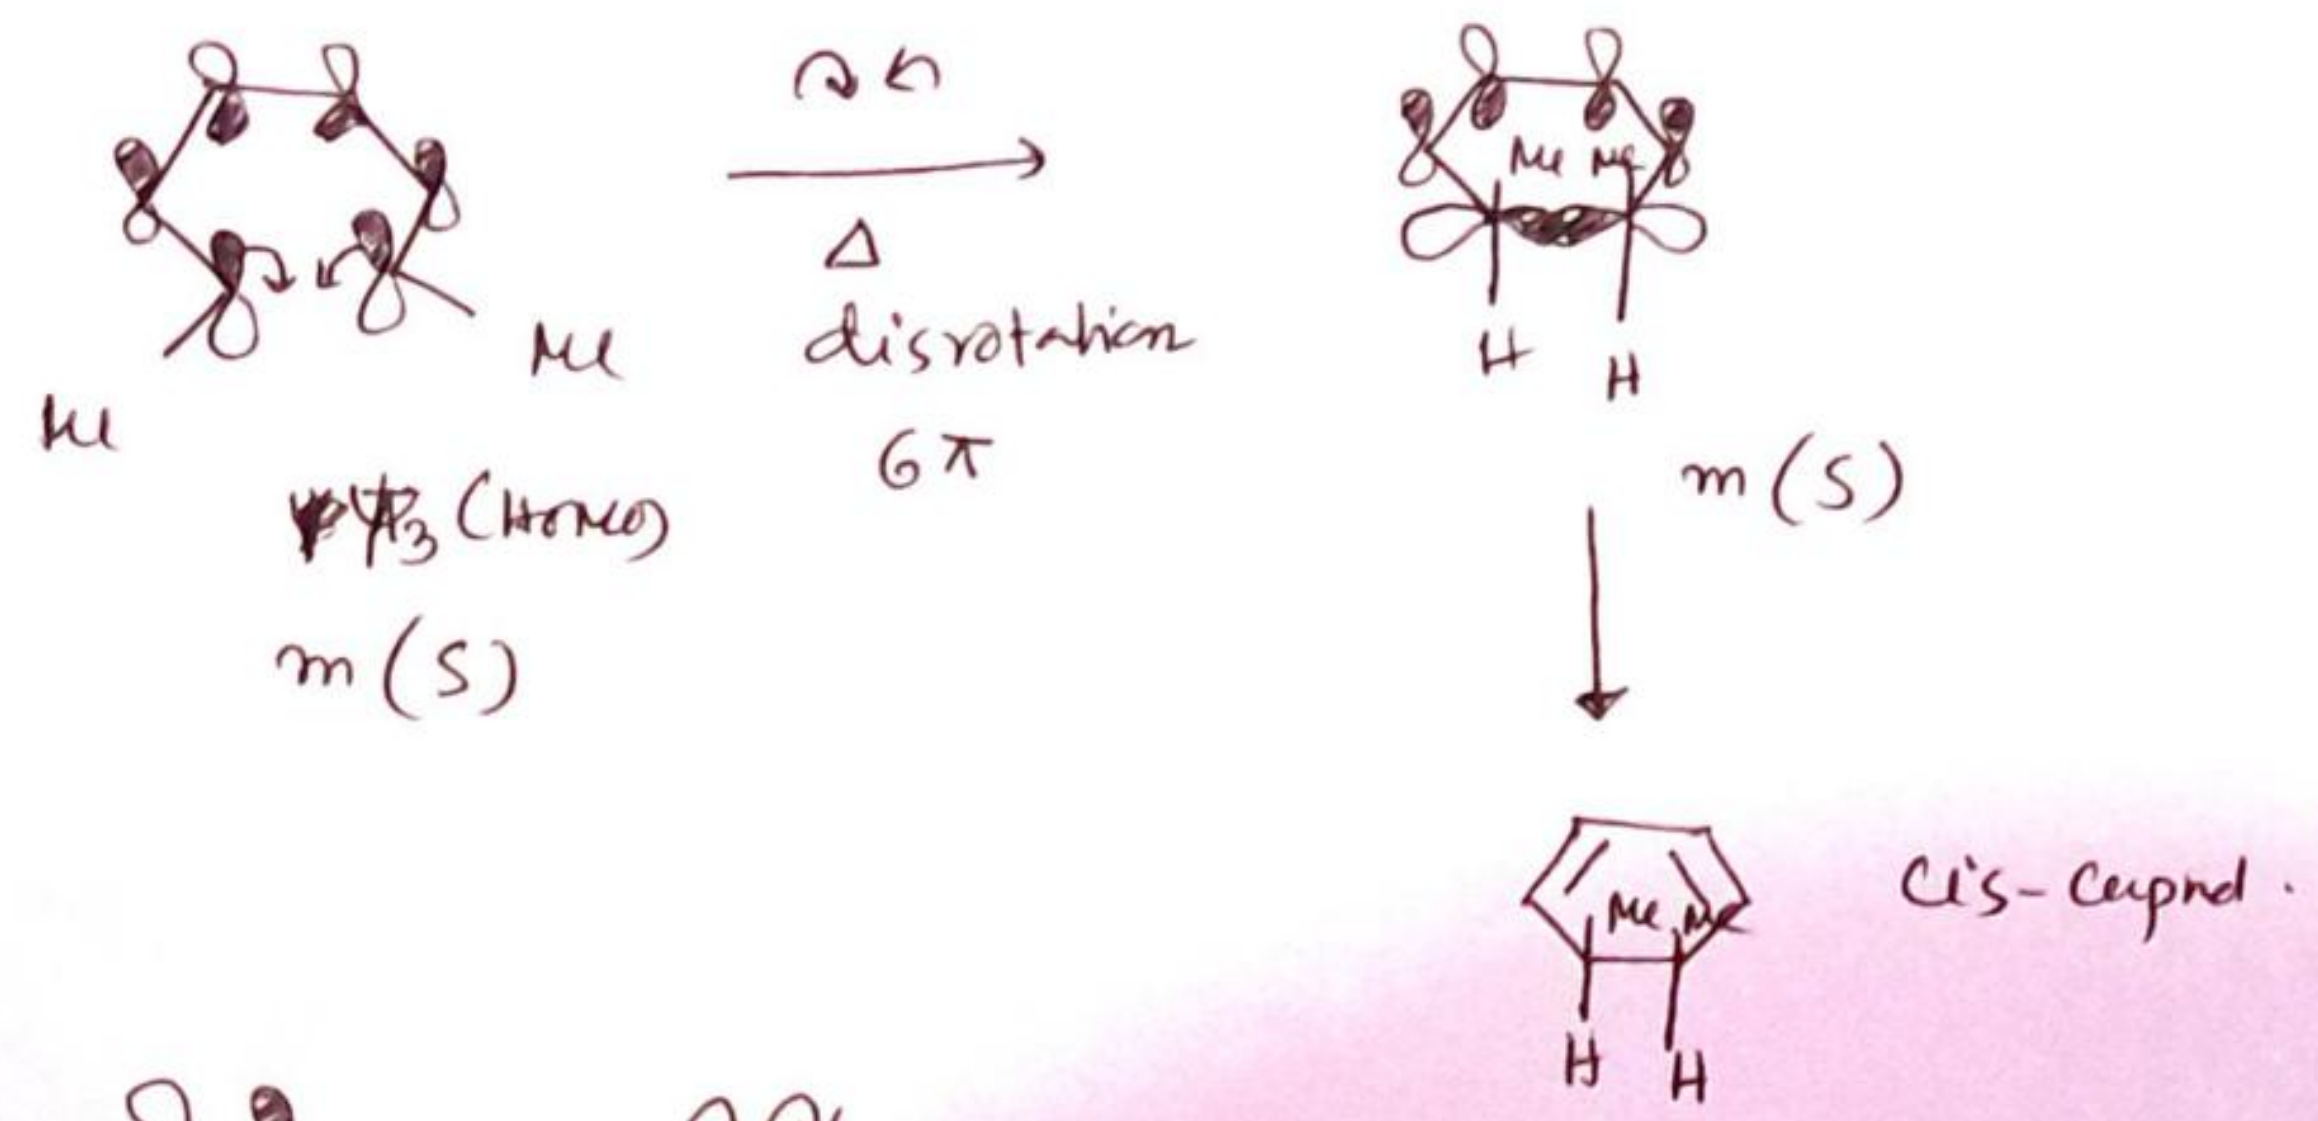 Me
Me
ψ3 (HOMO)
m (S)
Δ
disrotation
6π
Me Me
H H
m (S)
Me Me
H H
Cis-